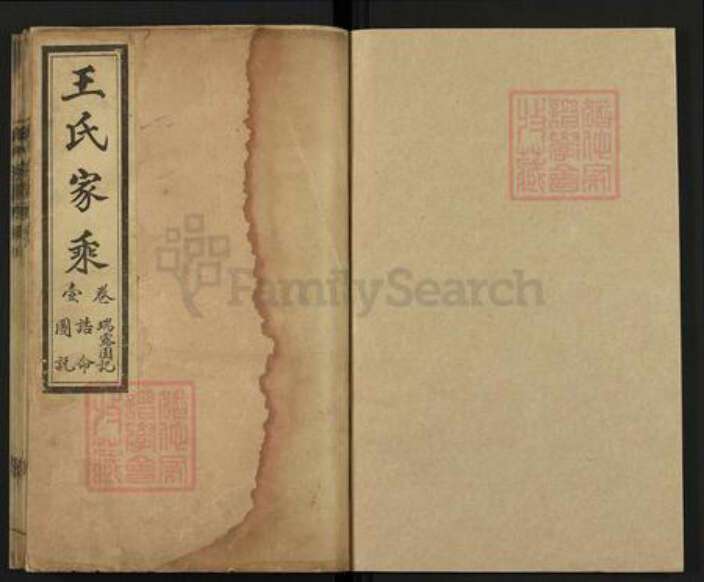 王氏家乘
卷壹
瑞露園記
誥命
圖説
FamilySearch